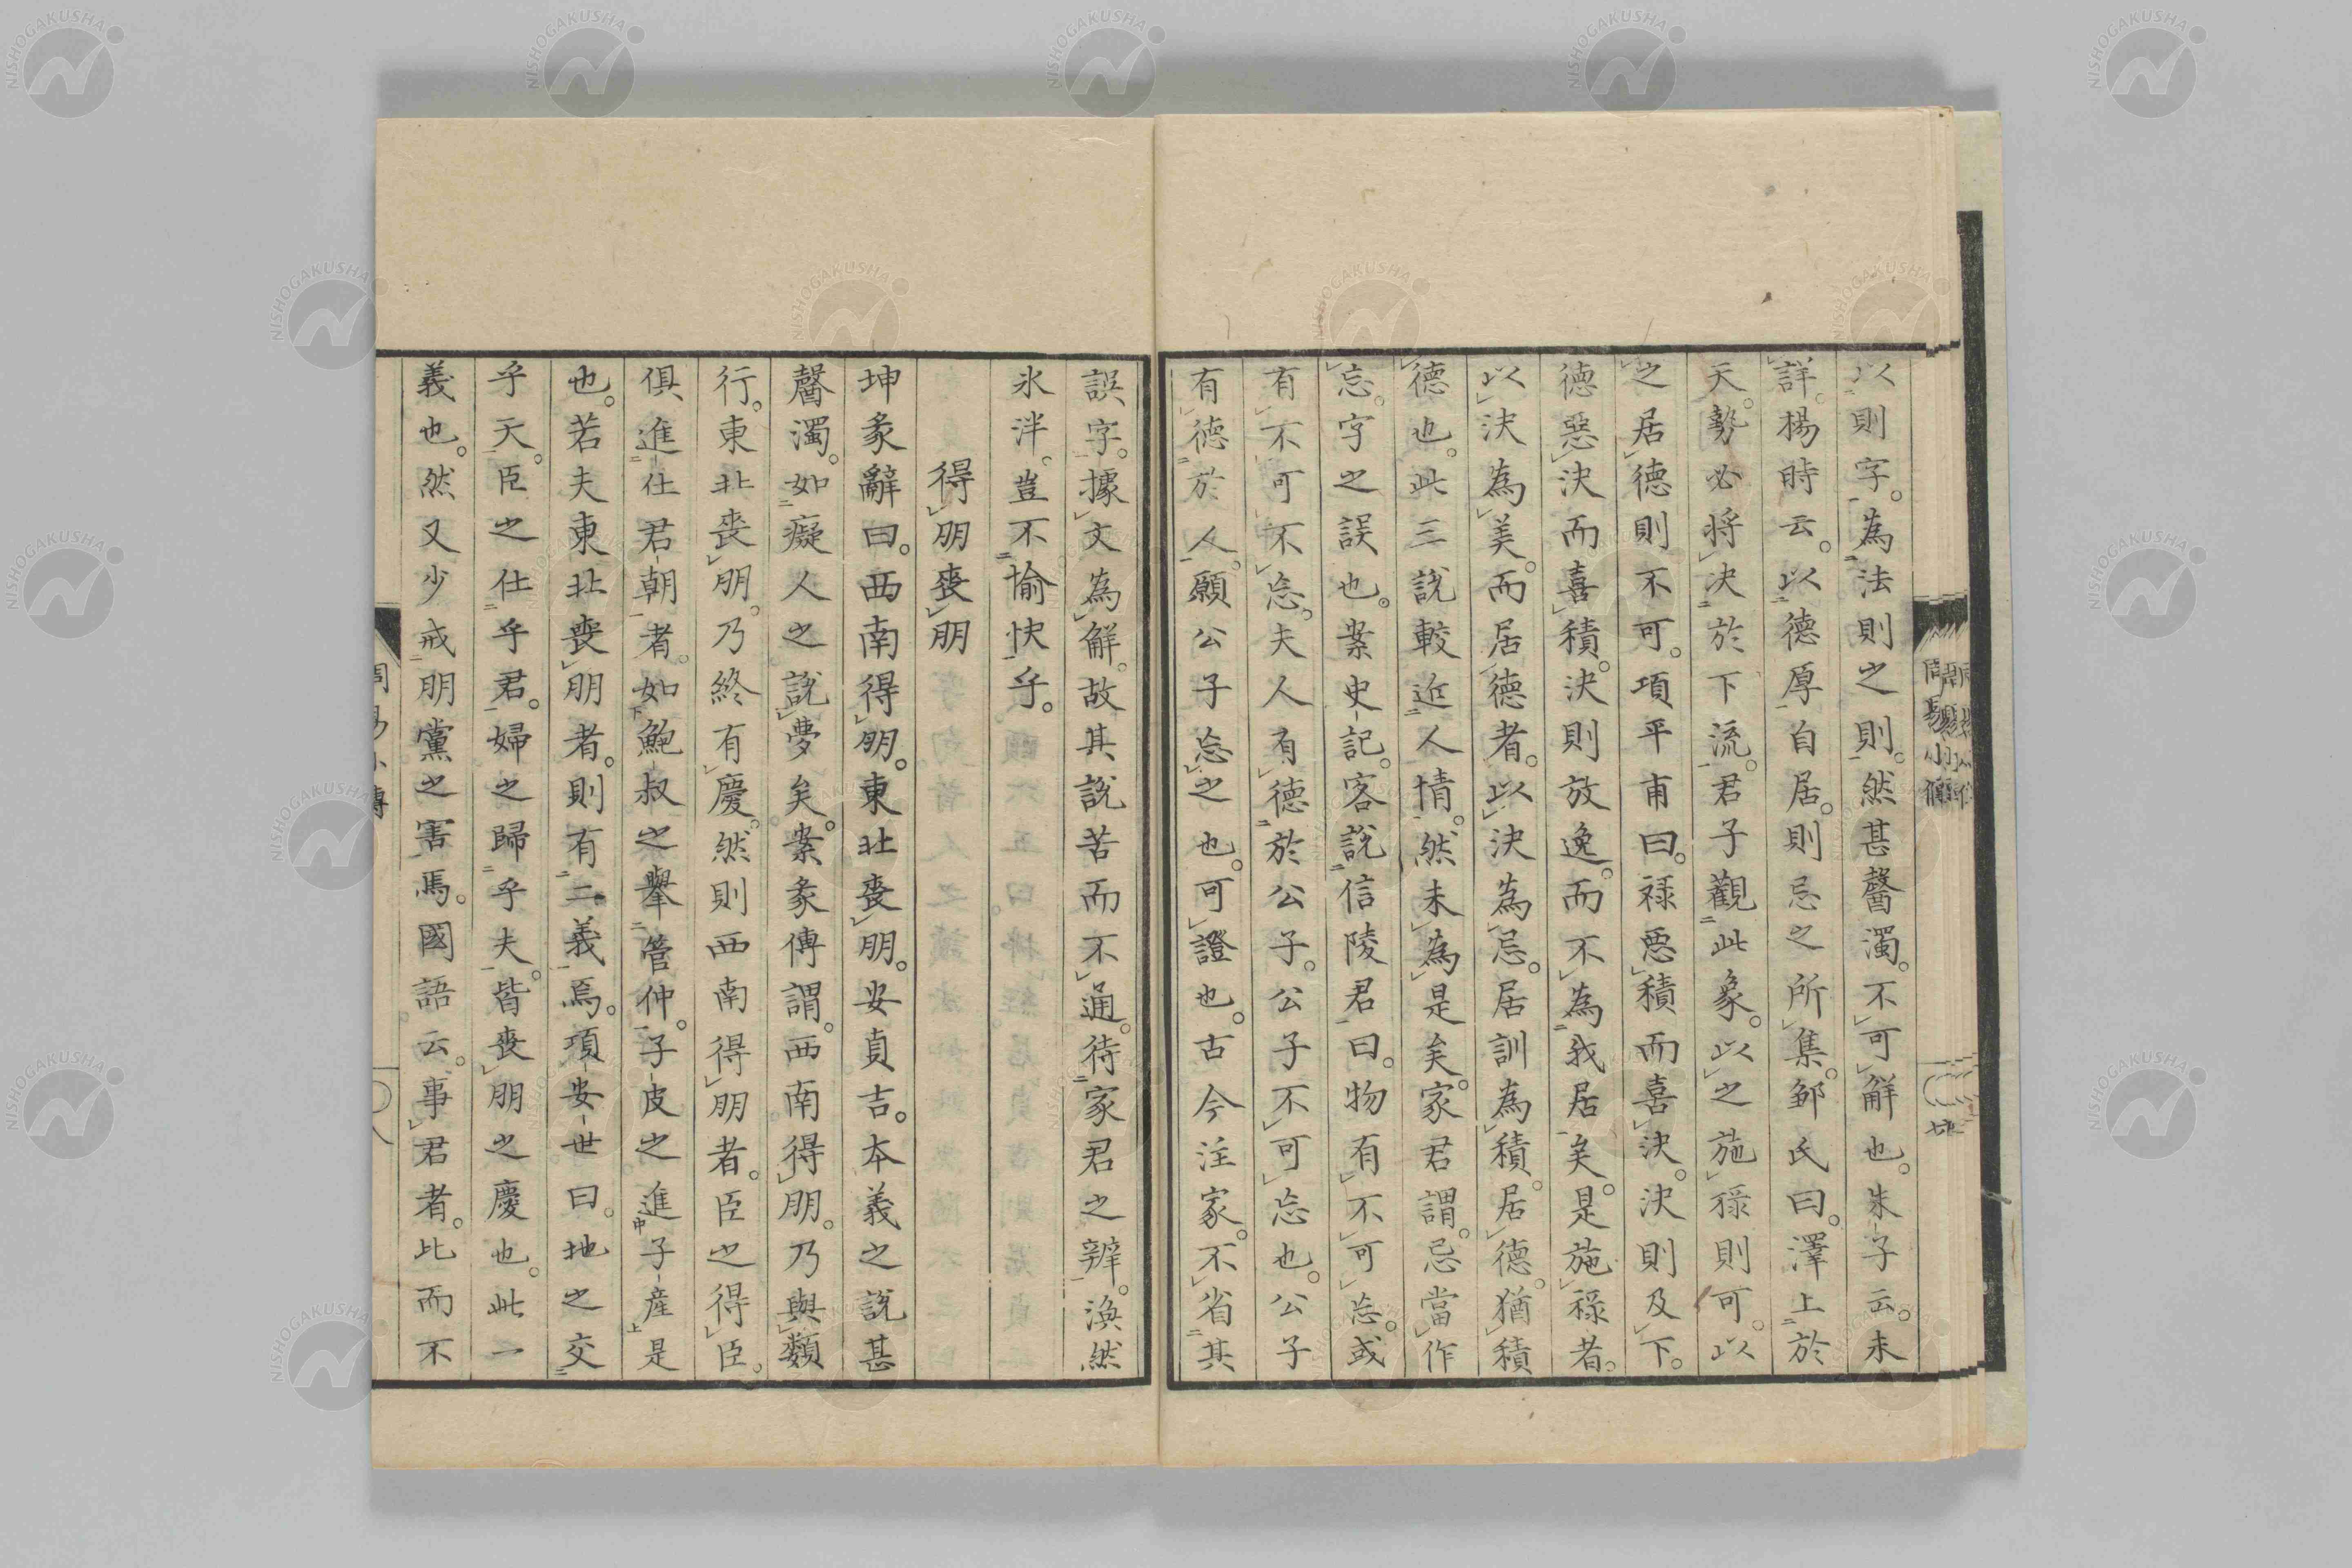 以則字。為法則之則。然甚醫濁。不可解也。朱子云。未
詳。楊時云。以德厚自居。則忌之所集。鄒氏曰。澤上於
天。勢必将決於下流。君子觀此象。以之施祿則可。以
之居德則不可。項平甫曰。祿惡積而喜決。決則及下。
德惡決而喜積。決則放逸。而不為我居矣。是施祿者。
以決為美。而居德者。以決為忌。居訓為積。居德猶積
德也。此三說較近人情。然未為是矣。家君謂。忌當作
忘。字之誤也。案史記。客說信陵君曰。物有不可忘。或
有不可不忘。夫人有德於公子。公子不可忘也。公子
有德於人。願公子忘之也。可證也。古今注家。不省其
誤字。據文為解。故其說苦而不通。待家君之辨。渙然
氷泮。豈不愉快乎。
得朋喪朋
坤彖辭曰。西南得朋。東北喪朋。安貞吉。本義之說甚
醫濁。如癡人之說夢矣。案彖傳謂。西南得朋。乃與類
行。東北喪朋。乃終有慶。然則西南得朋者。臣之得臣。
俱進仕君朝者。如鮑叔之擧管仲。子皮之進子産是
也。若夫東北喪朋者。則有二義焉。項安世曰。地之交
乎天。臣之仕乎君。婦之歸乎夫。皆喪朋之慶也。此一
義也。然又少戒朋黨之害焉。國語云。事君者。比而不
周易小傳